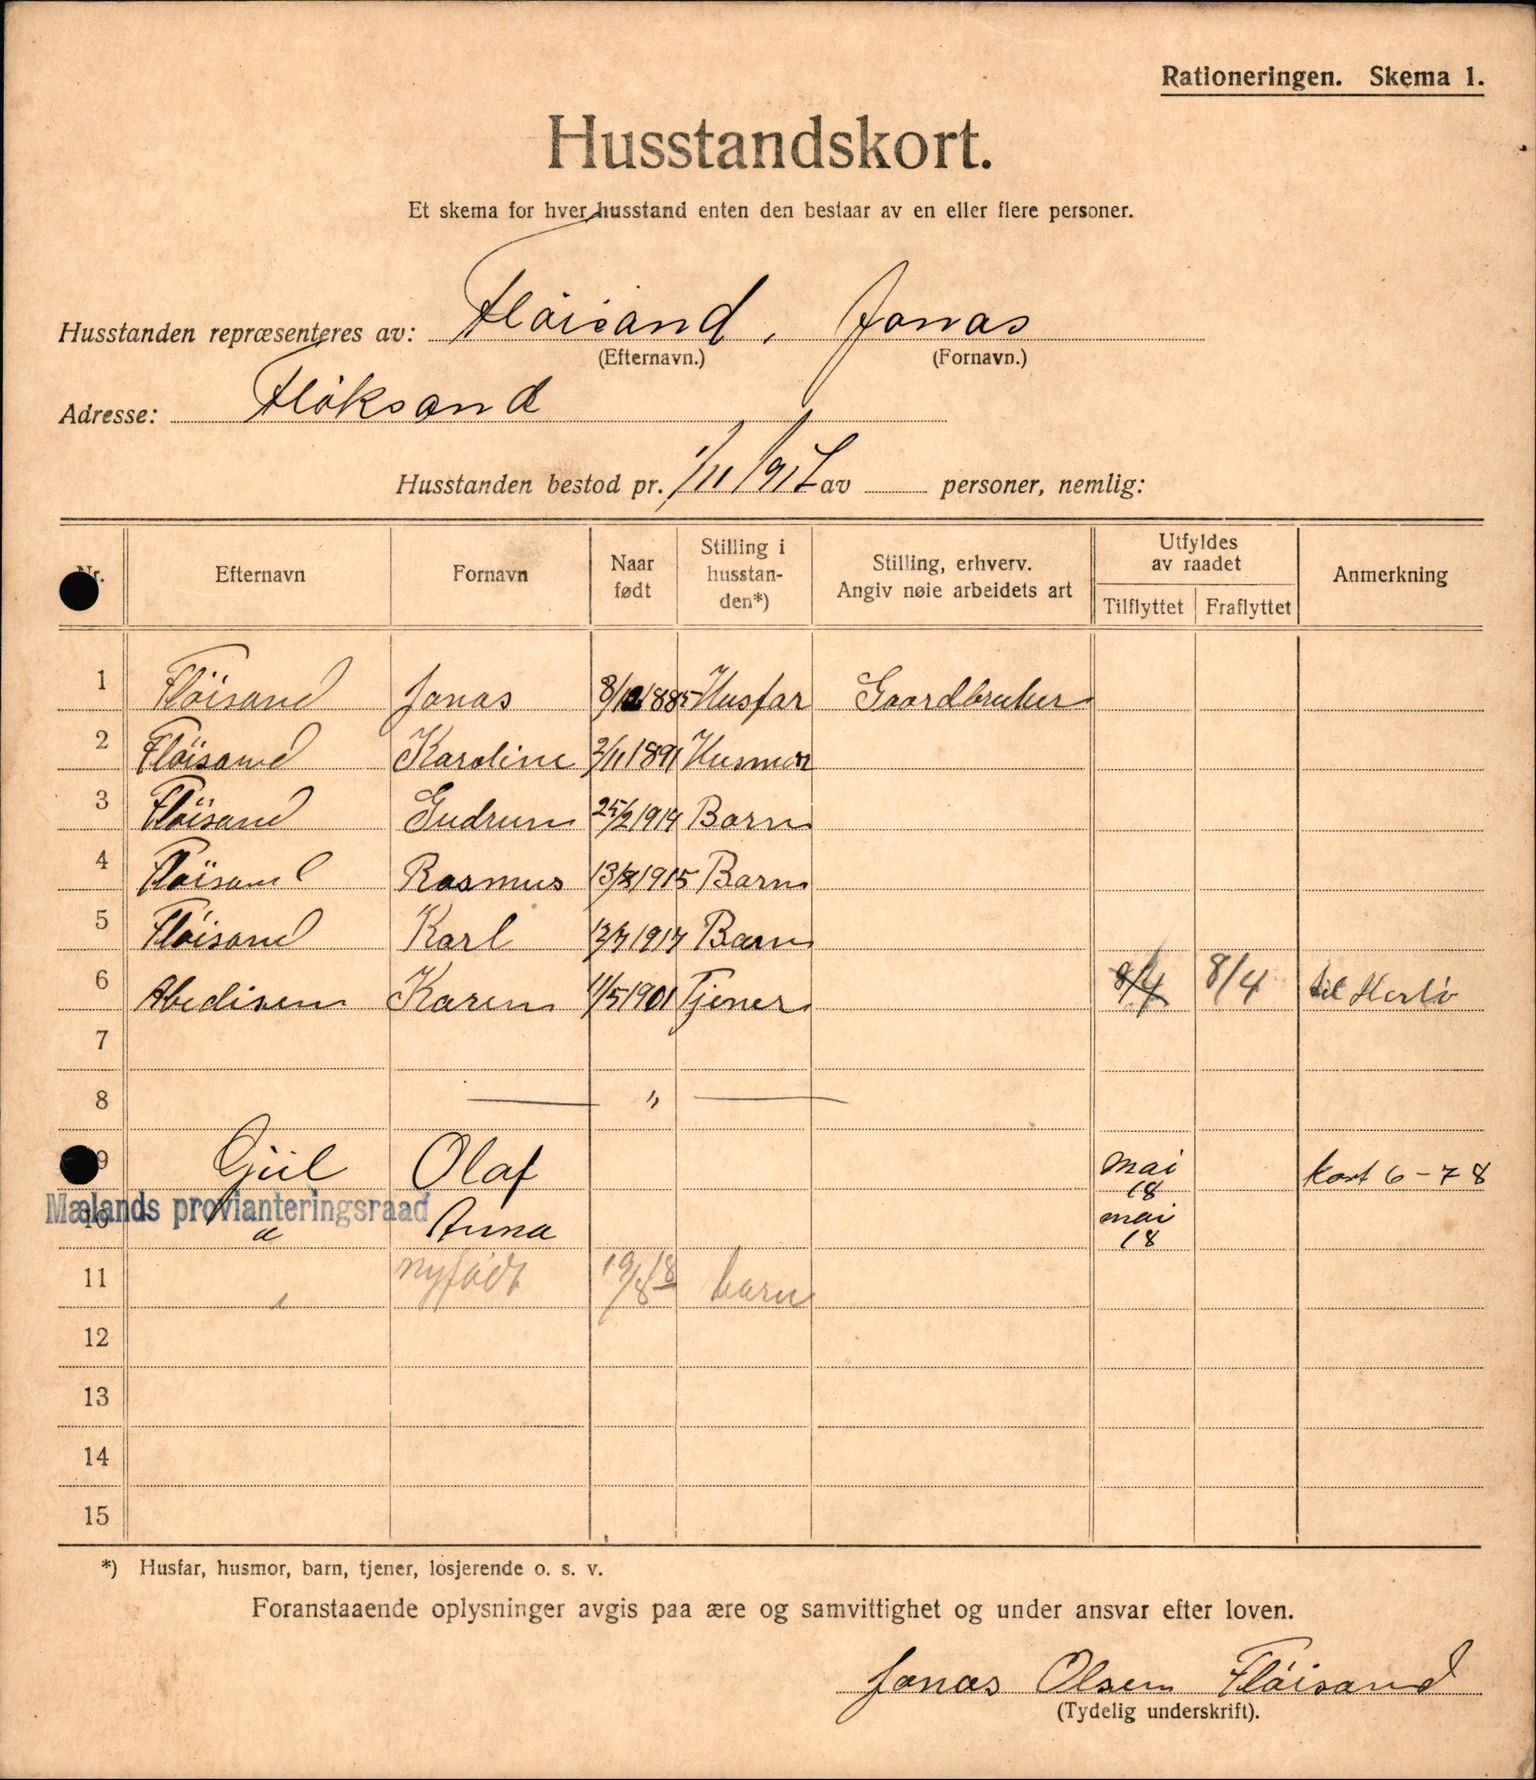 Rationeringen. Skema 1.
Husstandskort.
Et skema for hver husstand enten den bestaar av en eller flere personer.
Husstanden repræsenteres av: Fløisand, Jonas
(Efternavn.) (Fornavn.)
Adresse: Fløksand
Husstanden bestod pr. 1/11 1917 av personer, nemlig:
Nr. Efternavn Fornavn Naar født Stilling i husstanden*) Stilling, erhverv. Angiv nøie arbeidets art Utfyldes av raadet Tilflyttet Fraflyttet Anmerkning
1 Fløisand Jonas 8/12 1885 Husfar Gaardbruker
2 Fløisand Karoline 2/11 1891 Husmor
3 Fløisand Gudrun 25/2 1914 Barn
4 Fløisand Rasmus 13/8 1915 Barn
5 Fløisand Karl 12/7 1917 Barn
6 Abedisen Karen 11/5 1901 Tjener 8/4 8/4 til Herlö
7
8 — " —
9 Giil Olaf mai 18 kort 6-78
Mælands provianteringsraad
10 a Anna mai 18
11 nyfödt 19/8 18 barn
12
13
14
15
*) Husfar, husmor, barn, tjener, losjerende o. s. v.
Foranstaaende oplysninger avgis paa ære og samvittighet og under ansvar efter loven.
Jonas Olsen Fløisand
(Tydelig underskrift).